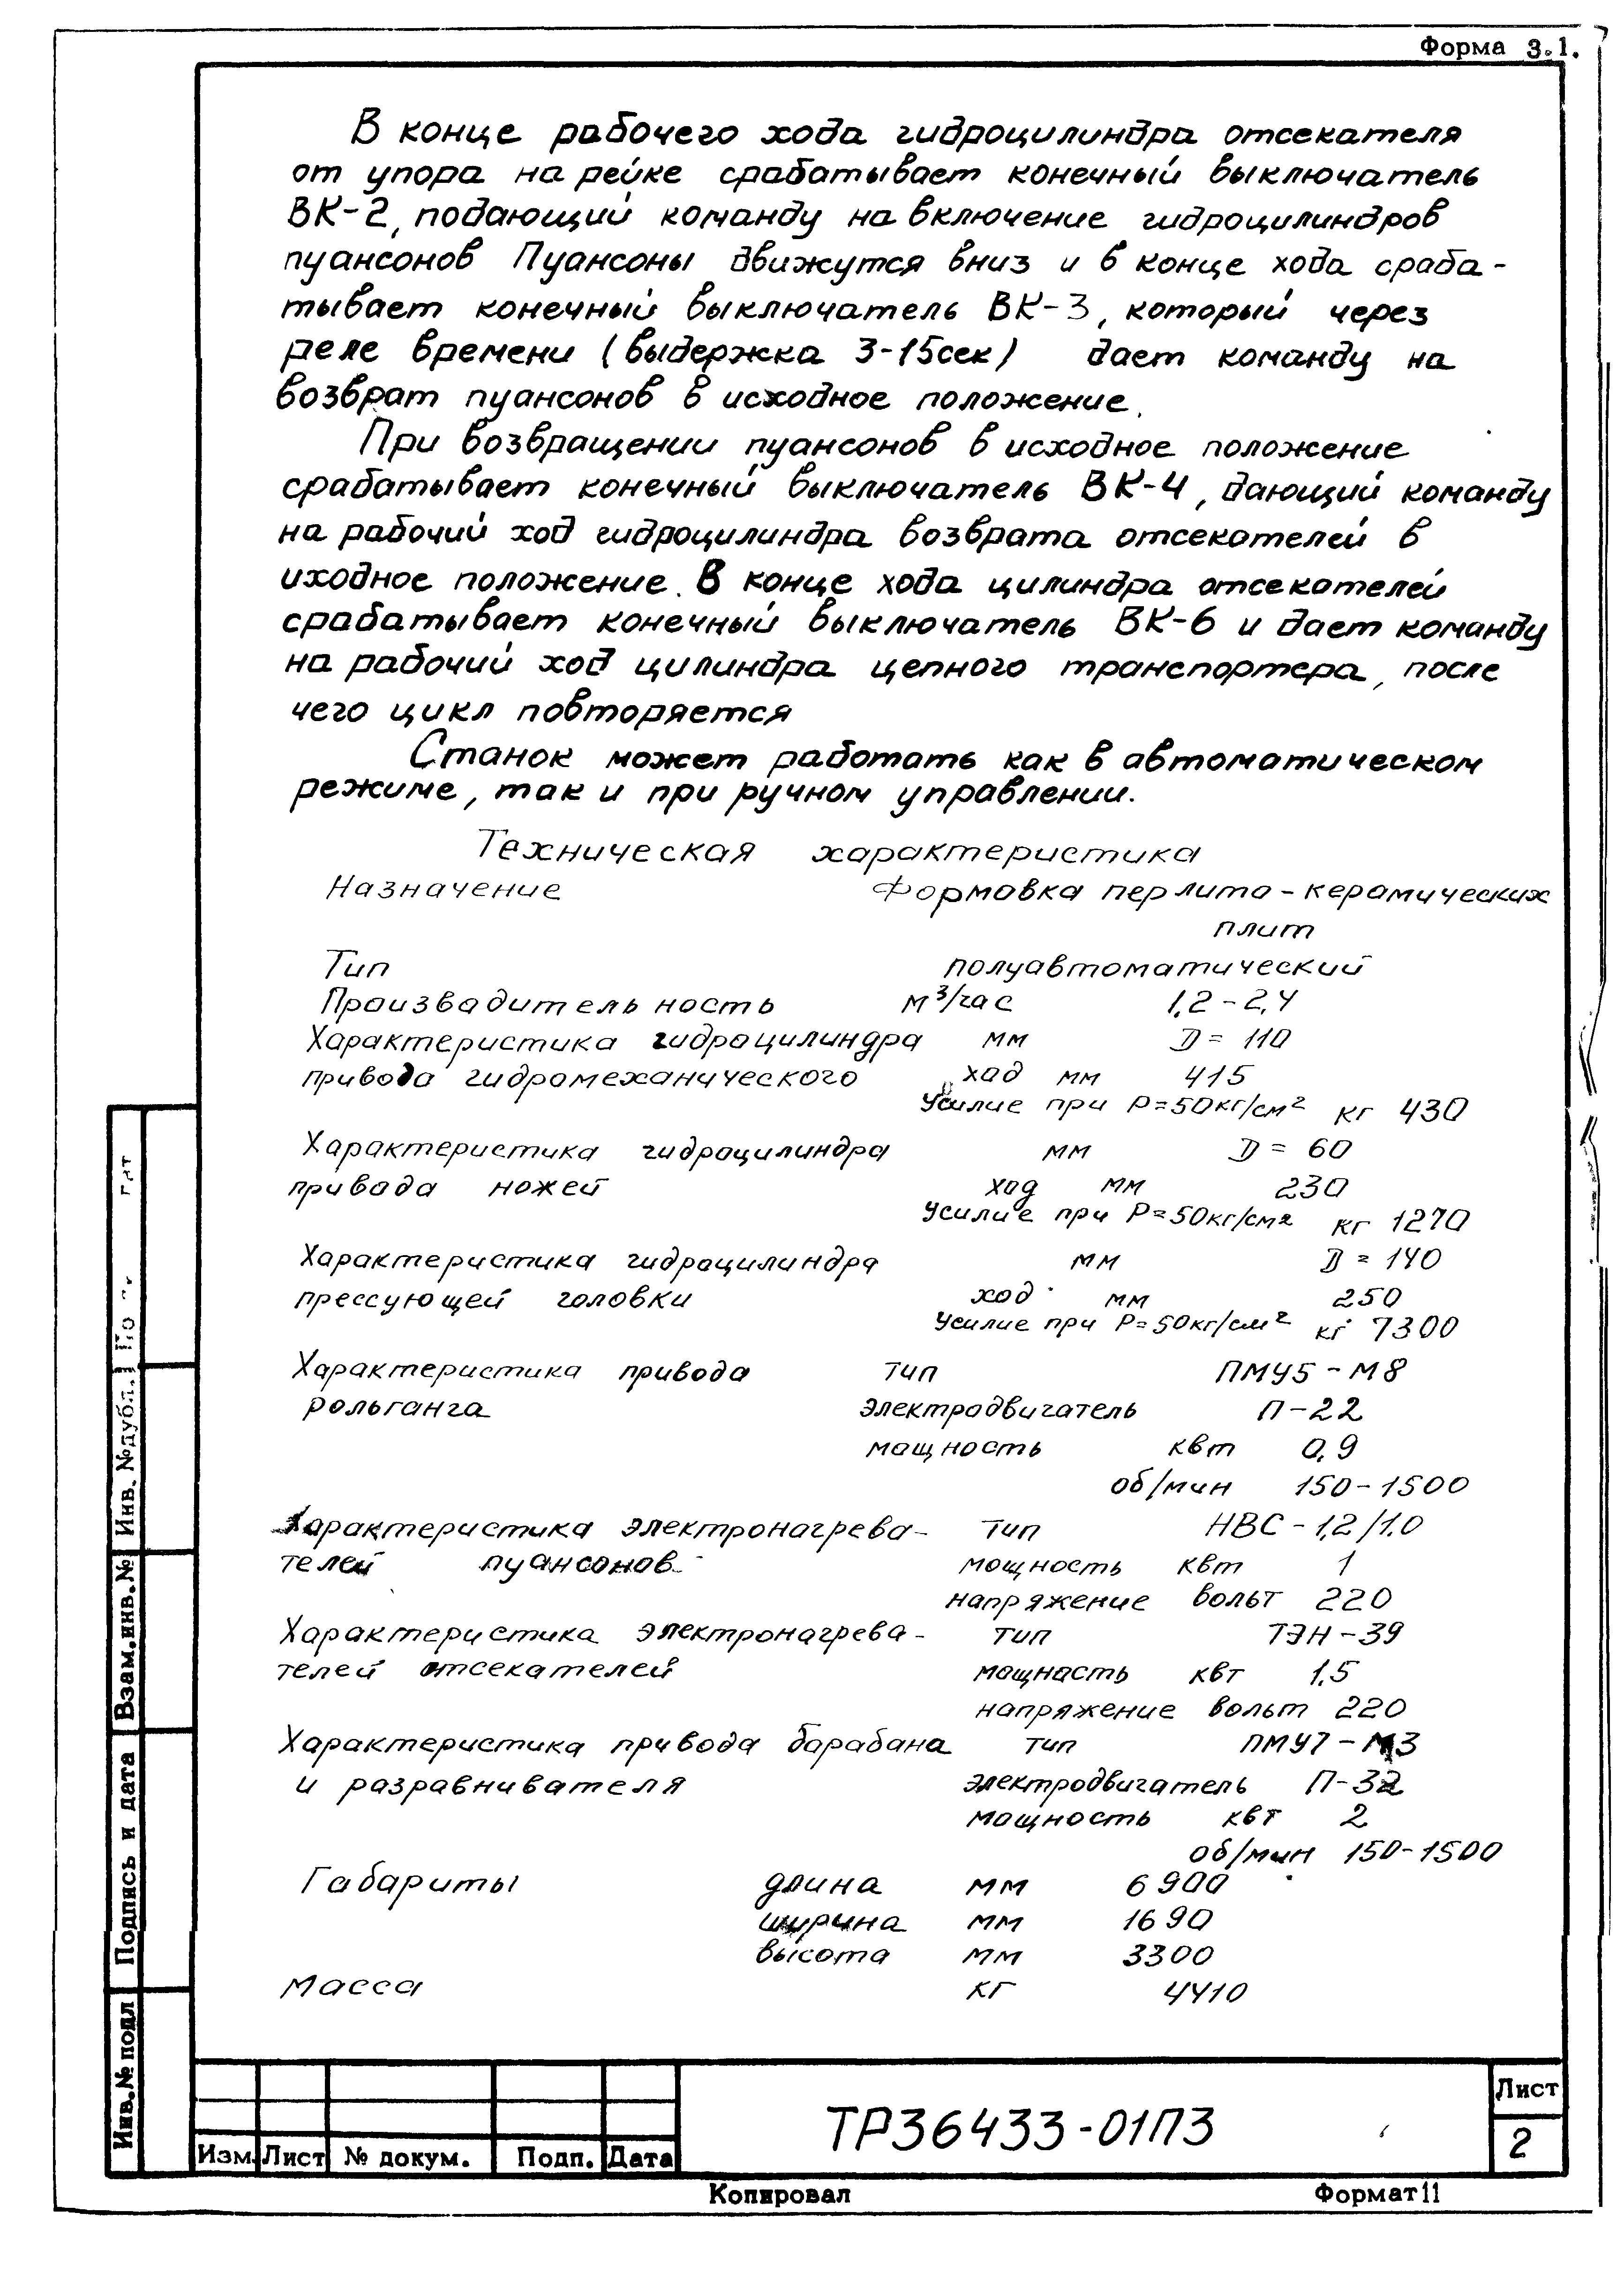 Форма 3.1.
В конце рабочего хода гидроцилиндра отсекателя
от упора на рейке срабатывает конечный выключатель
ВК-2, подающий команду на включение гидроцилиндров
пуансонов Пуансоны движутся вниз и в конце хода сраба-
тывает конечный выключатель ВК-3, который через
реле времени (выдержка 3-15сек) дает команду на
возврат пуансонов в исходное положение.
При возвращении пуансонов в исходное положение
срабатывает конечный выключатель ВК-4, дающий команду
на рабочий ход гидроцилиндра возврата отсекателей в
иходное положение. В конце хода цилиндра отсекателей
срабатывает конечный выключатель ВК-6 и дает команду
на рабочий ход цилиндра цепного транспортера, после
чего цикл повторяется
Станок может работать как в автоматическом
режиме, так и при ручном управлении.
Техническая характеристика
Назначение Формовка перлито-керамических
плит
Тип полуавтоматический
Производительность м³/час 1,2-2,4
Характеристика гидроцилиндра мм D = 110
привода гидромеханического ход мм 415
Усилие при Р=50кг/см² кг 430
Характеристика гидроцилиндра мм D = 60
привода ножей ход мм 230
Усилие при Р=50кг/см² кг 1270
Характеристика гидроцилиндра мм D = 140
прессующей головки ход мм 250
Усилие при Р=50кг/см² кг 7300
Характеристика привода тип ПМУ5-М8
рольганга электродвигатель П-22
мощность квт 0,9
об/мин 150-1500
Характеристика электронагрева- тип НВС-1,2/1.0
телей пуансонов мощность квт 1
напряжение вольт 220
Характеристика электронагрева- тип ТЭН-39
телей отсекателей мощность квт 1,5
напряжение вольт 220
Характеристика привода барабана тип ПМУ7-М3
и разравнивателя электродвигатель П-32
мощность квт 2
об/мин 150-1500
Габариты длина мм 6900
ширина мм 1690
высота мм 3300
Масса кг 4410
Инв. № дубл.
Взам.инв.№
Подпись и дата
Инв.№ подл
Изм. Лист № докум. Подп. Дата
ТР36433-01ПЗ
Лист
2
Копировал Формат 11